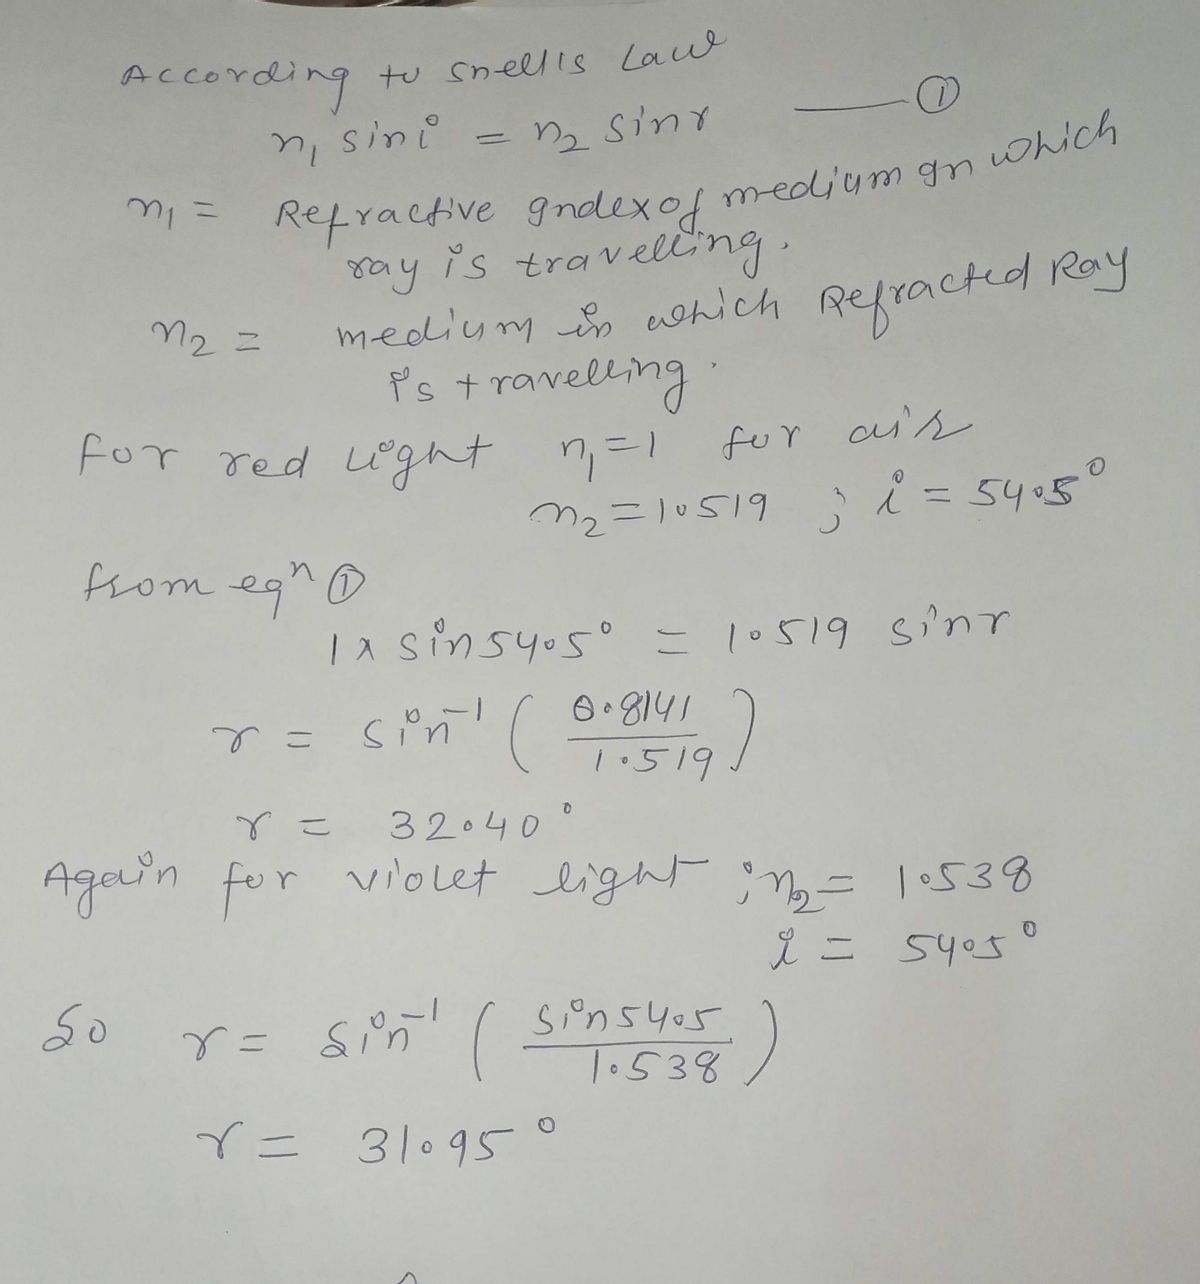 According to snell's Law
n₁ sini = n₂ sinr —— ①
n₁ = Refractive Index of medium In which
ray is travelling.
n₂ = medium in which Refracted Ray
is travelling.
for red light n₁=1 for air
n₂=1.519 ; i = 54.5°
from eqⁿ ①
1 x sin54.5° = 1.519 sinr
r = sin⁻¹ ( 0.8141 / 1.519 )
r = 32.40°
Again for violet light ; n₂ = 1.538
i = 54.5°
So r = sin⁻¹ ( sin54.5 / 1.538 )
r = 31.95°